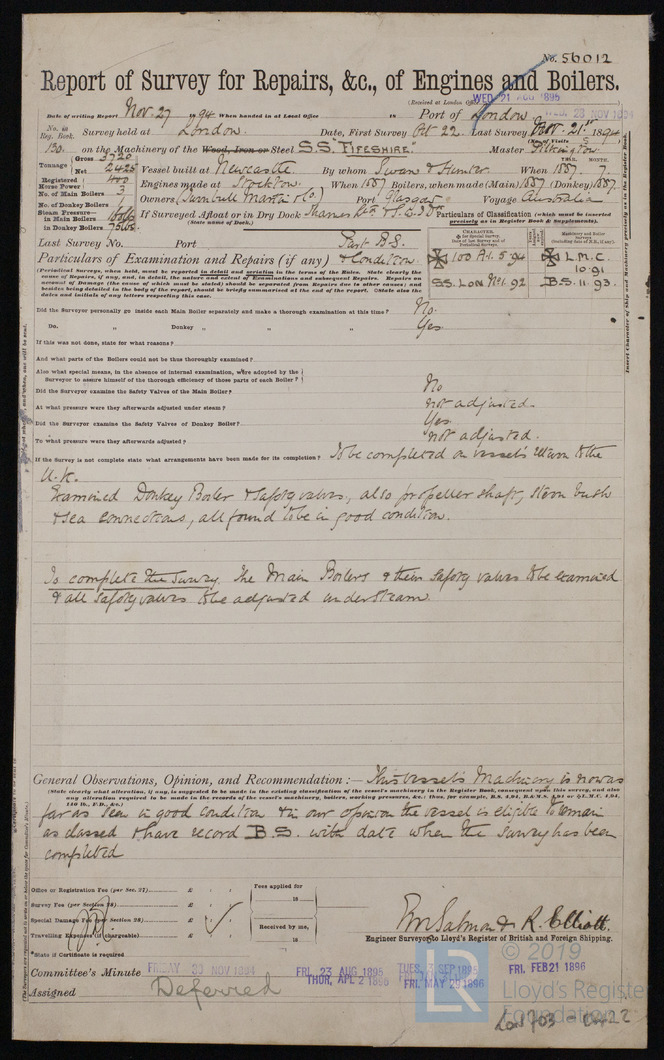 No. 56012
Report of Survey for Repairs, &c., of Engines and Boilers.
(Received at London Office
WED. 21 AUG 1895
WED. 28 NOV 1894
Date of writing Report Nov. 27 1894 When handed in at Local Office 18 Port of London
No. in Reg. Book. Survey held at London. Date, First Survey Oct 22. Last Survey Nov. 21st 1894
(No. of Visits 3)
130. on the Machinery of the Wood, Iron or Steel S.S. "FIFESHIRE" Master Pilkington
Tonnage Gross 3720 Net 2425 Vessel built at Newcastle. By whom Swan & Hunter. When 1887. 7.
YEAR. MONTH.
Registered Horse Power: 400 Engines made at Stockton. When 1887 Boilers, when made (Main) 1887 (Donkey) 1887.
No. of Main Boilers 3
No. of Donkey Boilers Owners Turnbull Martin & Co. Port Glasgow Voyage Australia
Steam Pressure— in Main Boilers 160lb
in Donkey Boilers 75lbs. If Surveyed Afloat or in Dry Dock
(State name of Dock.)
Particulars of Classification (which must be inserted precisely as in Register Book & Supplements).
Last Survey No. Port Part B.S.
Particulars of Examination and Repairs (if any) & Condition.
CHARACTER.
Machinery and Boiler Surveys
(including date of N.B., if any)
100 A1. 5.94
L.M.C. 10.91
SS. LON No1. 92
B.S. 11.93.
(Periodical Surveys, when held, must be reported in detail and seriatim in the terms of the Rules. State clearly the cause of Repairs, if any, and, in detail, the nature and extent of Examinations and subsequent Repairs. Repairs on account of Damage (the cause of which must be stated) should be separated from Repairs due to other causes; and besides being detailed in the body of the report, should be briefly summarised at the end of the report. State also the dates and initials of any letters respecting this case.
Insert Character of Ship and Machinery precisely as in the Register Book.
Did the Surveyor personally go inside each Main Boiler separately and make a thorough examination at this time? No.
Do. Donkey " " " Yes
If this was not done, state for what reasons?
And what parts of the Boilers could not be thus thoroughly examined?
Also what special means, in the absence of internal examination, were adopted by the Surveyor to assure himself of the thorough efficiency of those parts of each Boiler?
Did the Surveyor examine the Safety Valves of the Main Boiler? No
At what pressure were they afterwards adjusted under steam? not adjusted.
Did the Surveyor examine the Safety Valves of Donkey Boiler? Yes.
To what pressure were they afterwards adjusted? not adjusted.
If the Survey is not complete state what arrangements have been made for its completion? To be completed on vessel's return to the
U.K.
Examined Donkey Boiler & safety valves, also propeller shaft, stern bush
& sea connections, all found to be in good condition.
To complete the survey. The Main Boilers & their safety valves to be examined
& all safety valves to be adjusted under steam.
General Observations, Opinion, and Recommendation:— This vessel's Machinery is now as
(State clearly what alteration, if any, is suggested to be made in the existing classification of the vessel's machinery in the Register Book, consequent upon this survey, and also any alteration required to be made in the records of the vessel's machinery, boilers, working pressure, &c.; thus, for example, B.S. 4,94, B.&M.S. 4,91 or L.M.C. 4,94, 140 lb., F.D., &c.)
far as seen in good condition & in our opinion the vessel is eligible to remain
as classed & have record B.S. with date when the survey has been
completed
Office or Registration Fee (per Sec. 27) £
Survey Fee (per Section 28) £
Special Damage Fee (per Section 28) £
Travelling Expenses (if chargeable) £
*State if Certificate is required
Fees applied for
18
Received by me,
18
Wm Salmon & R. Elliott.
Engineer Surveyors to Lloyd's Register of British and Foreign Shipping.
Committee's Minute FRIDAY 30 NOV 1894
FRI. 23 AUG 1895
THUR. APL 2 1896
FRI. MAY 29 1896
FRI. FEB 21 1896
Assigned Deferred
© 2019
LR
Lloyd's Register
Foundation
LON 703 - 0422